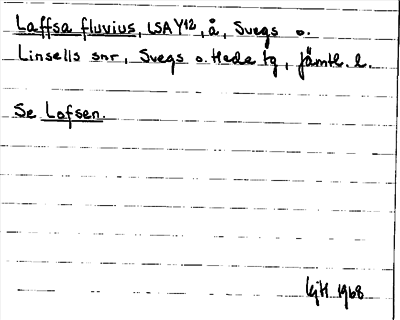 Laffsa fluvius, LSA Y12, å, Svegs o.
Linsells snr, Svegs o. Hede tg, Jämtl. l.
Se Lofsen.
1968